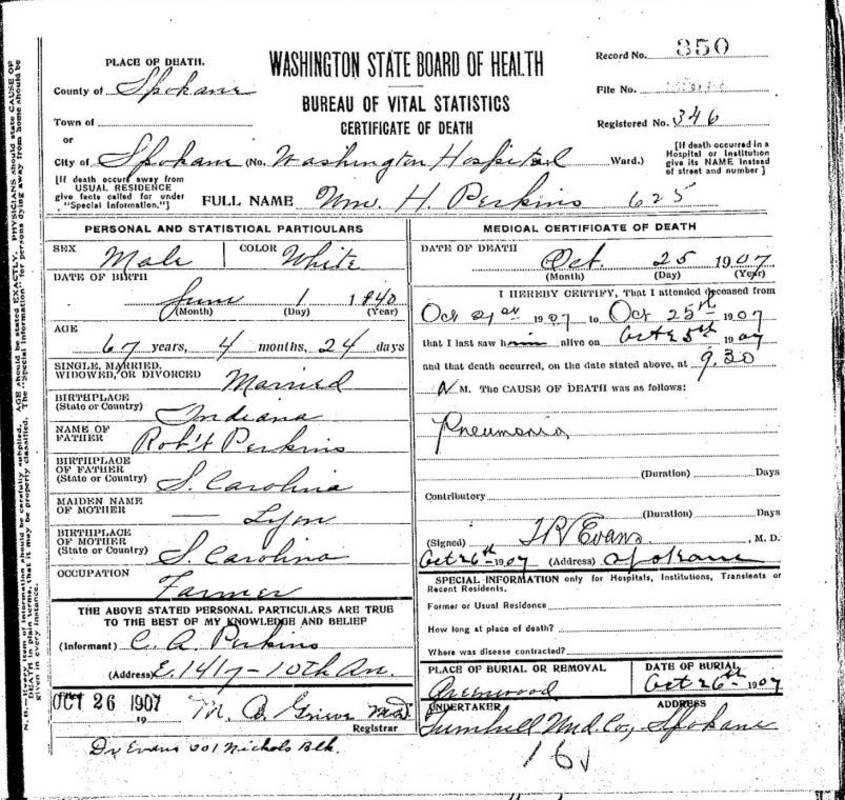 PLACE OF DEATH.
County of Spokane
Town of
or
City of Spokane (No. Washington Hospital Ward.)
[If death occurs away from
USUAL RESIDENCE
give facts called for under
"Special Information."]
WASHINGTON STATE BOARD OF HEALTH
BUREAU OF VITAL STATISTICS
CERTIFICATE OF DEATH
Record No. 350
File No.
Registered No. 346
[If death occurred in a
Hospital or Institution
give its NAME instead
of street and number]
FULL NAME Wm. H. Perkins 625
PERSONAL AND STATISTICAL PARTICULARS
SEX Male COLOR White
DATE OF BIRTH
June 1 1840
(Month) (Day) (Year)
AGE
67 years, 4 months, 24 days
SINGLE, MARRIED,
WIDOWED, OR DIVORCED Married
BIRTHPLACE
(State or Country) Indiana
NAME OF
FATHER Rob't Perkins
BIRTHPLACE
OF FATHER
(State or Country) S. Carolina
MAIDEN NAME
OF MOTHER — Lyon
BIRTHPLACE
OF MOTHER
(State or Country) S. Carolina
OCCUPATION Farmer
THE ABOVE STATED PERSONAL PARTICULARS ARE TRUE
TO THE BEST OF MY KNOWLEDGE AND BELIEF
(Informant) C. A. Perkins
(Address) E. 1417-10th Av.
OCT 26 1907
19
M. B. Grieve M.D.
Registrar
Dr Evans 201 Nichols Blk.
MEDICAL CERTIFICATE OF DEATH
DATE OF DEATH
Oct. 25 1907
(Month) (Day) (Year)
I HEREBY CERTIFY, That I attended deceased from
Oct 21st 1907 to Oct 25th 1907
that I last saw him alive on Oct 25th 1907
and that death occurred, on the date stated above, at 9.30
M. The CAUSE OF DEATH was as follows:
Pneumonia
(Duration) Days
Contributory
(Duration) Days
(Signed) Evans, M. D.
Oct 26th 1907 (Address) Spokane
SPECIAL INFORMATION only for Hospitals, Institutions, Transients or
Recent Residents.
Former or Usual Residence
How long at place of death?
Where was disease contracted?
PLACE OF BURIAL OR REMOVAL
Greenwood
DATE OF BURIAL
Oct 26th 1907
UNDERTAKER
ADDRESS
Und. Co., Spokane
N. B.—Every item of information should be carefully supplied. AGE should be stated EXACTLY. PHYSICIANS should state CAUSE OF
DEATH in plain terms, that it may be properly classified. The "Special Information" for persons dying away from home should be
given in every instance.